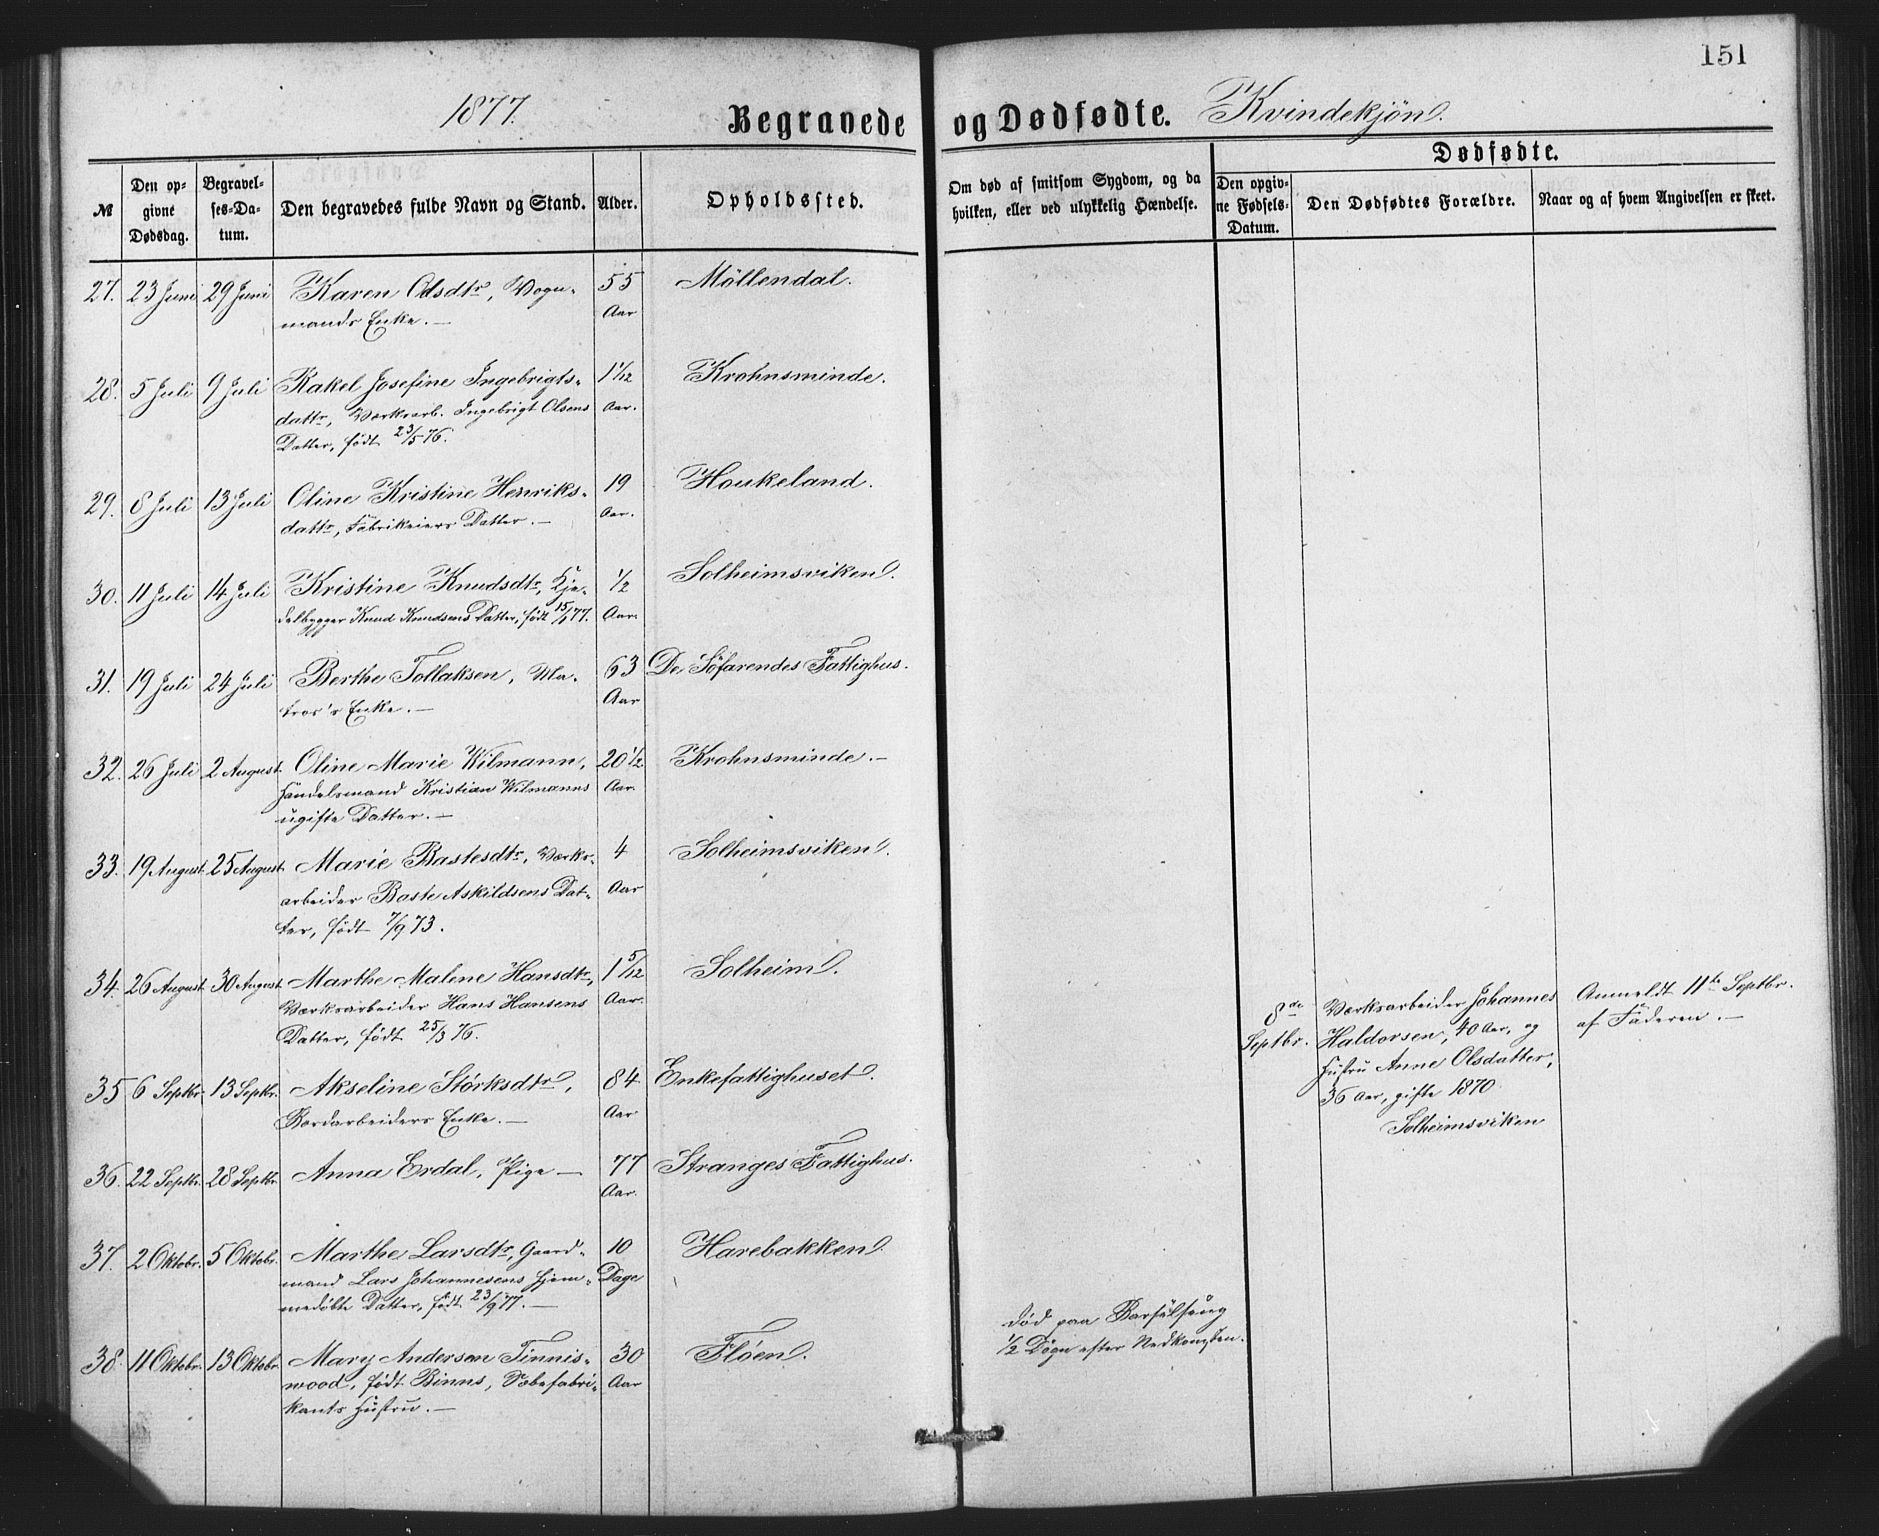 151
1877. Begravede og Dødfødte. Kvindekjøn.
№
Den op-
givne
Dødsdag.
Begravel-
ses-Da-
tum.
Den begravedes fulde Navn og Stand.
Alder.
Opholdssted.
Om død af smitsom Sygdom, og da
hvilken, eller ved ulykkelig Hændelse.
Dødfødte.
Den opgiv-
ne Fødsels-
Datum.
Den Dødfødtes Forældre.
Naar og af hvem Angivelsen er skeet.
27. 23 Juni 29 Juni Karen Olsdtr, Vogn- 55 Möllendal.
mands Enke. — Aar
28. 5 Juli 9 Juli Rakel Josefine Ingebrigts- 1 1/12 Krohnsminde.
dattr, Værksarb. Ingebrigt Olsens Aar.
Datter, født 23/5 76.
29. 8 Juli 13 Juli Oline Kristine Henriks- 19 Houkeland.
dattr, Fabrikeiers Datter. — Aar.
30. 11 Juli 14 Juli Kristine Knudsdtr, Kje- 1/2 Solheimsviken.
delbygger Knud Knudsens Datter, født 15/1 77. Aar.
31. 19 Juli 24 Juli Berthe Tollaksen, Ma- 63 De Söfarendes Fattighus.
tros's Enke. — Aar
32. 26 Juli 2 August Oline Marie Wilmann, 20 1/2 Krohnsminde. —
Handelsmand Kristian Wilmanns Aar.
ugifte Datter. —
33. 19 August 25 August Marie Bastesdtr, Værks- 4 Solheimsviken.
arbeider Baste Askildsens Dat- Aar
ter, født 7/9 73.
34. 26 August 30 August Marthe Malene Hansdtr, 1 5/12 Solheim.
Værksarbeider Hans Hansens Aar.
Datter, født 25/3 76.
8de
Septbr.
Værksarbeider Johannes
Haldorsen, 40 Aar, og
Hustru Anne Olsdatter,
36 Aar, gifte 1870
Solheimsviken
Anmeldt 11te Septbr.
af Faderen. —
35 6 Septbr. 13 Septbr. Akseline Störksdtr, 84 Enkefattighuset.
Bordarbeiders Enke. — Aar
36. 22 Septbr. 28 Septbr. Anna Erdal, Pige — 77 Stranges Fattighus.
Aar.
37. 2 Oktobr. 5 Oktobr. Marthe Larsdtr, Gaard- 10 Harebakken.
mand Lars Johannesens hjem- Dage
medøbte Datter, født 23/9 77. —
38. 11 Oktobr. 13 Oktobr. Mary Anderson Tinnis- 30 Flöen.
wood, født Binns, Sæbefabri- Aar
kants Hustru. —
død paa Barselseng
1/2 Døgn efter Nedkomsten.